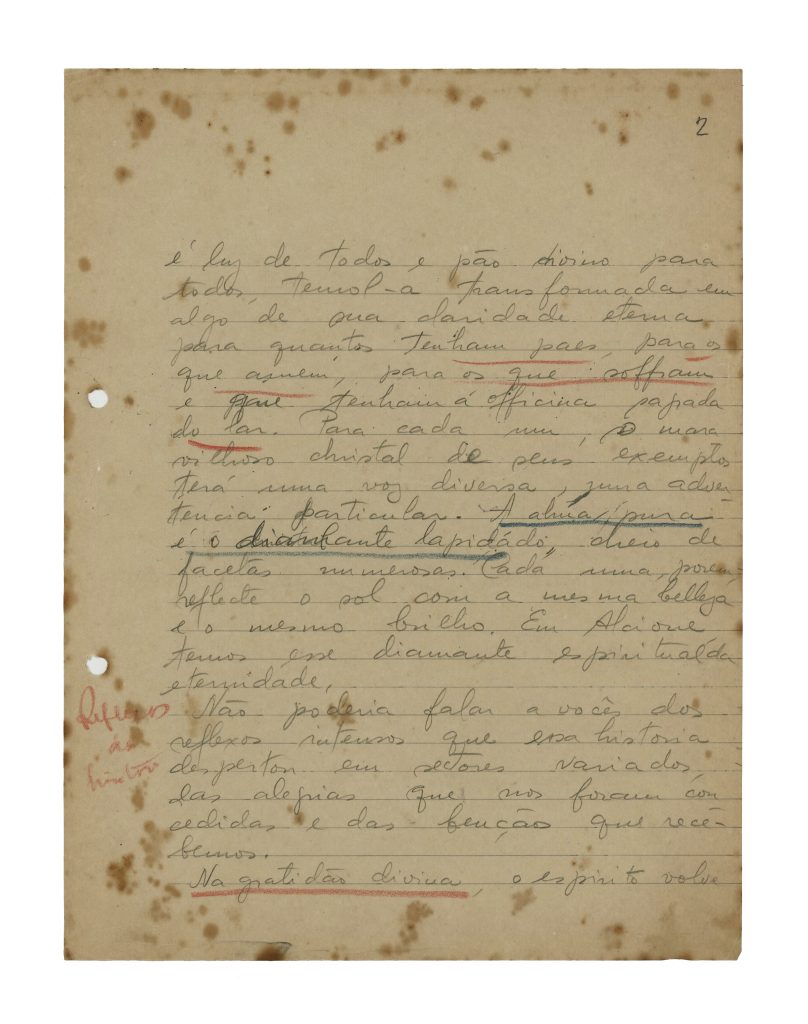 2
é luz de todos e pão divino para
todos, temol-a transformada em
algo de sua claridade eterna
para quantos tenham paes, para os
que amem, para os que soffram
e que tenham á officina sagrada
do lar. Para cada um, o mara
vilhoso christal de seus exemplos
terá uma voz diversa, uma adver-
tencia particular. A alma pura
é o diamante lapidado, cheio de
facetas numerosas. Cada uma, porem,
reflecte o sol com a mesma belleza
e o mesmo brilho. Em Alcione
temos esse diamante espiritual da
eternidade.
Não poderia falar a vocês dos
reflexos intensos que essa historia
despertou em sectores variados,
das alegrias que nos foram con
cedidas e das bençãos que rece-
bemos.
Na gratidão divina, o espirito volve
Reflexos
da
história